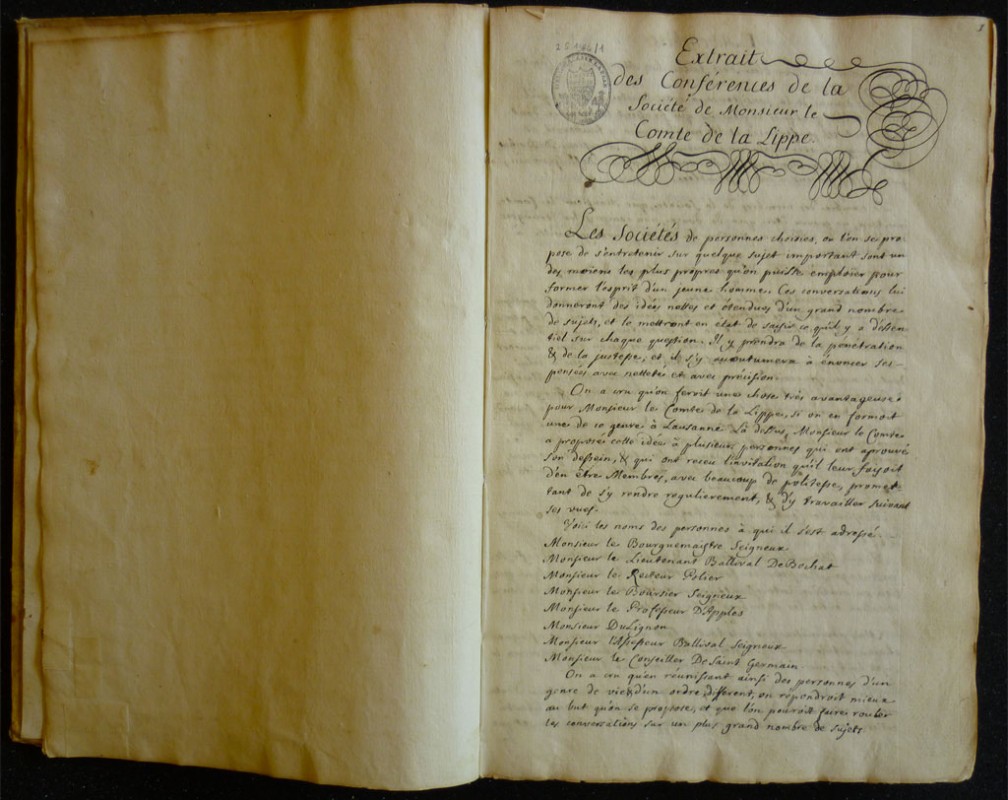 1
Extrait
des Conférences de la
Societé de Monsieur le
Comte de la Lippe.
Les Sociétés de personnes choisies, ou l'on se pro
pose de s'entretenir sur quelque sujet important sont un
des moiens les plus propres qu'on puisse emploier pour
former l'esprit d'un jeune homme. Ces conversations lui
donneront des idées nettes et étendues d'un grand nombre
de sujets, et le mettront en etat de saisir ce qu'il y a d'essen
tiel sur chaque question. Il y prendra de la pénétration
& de la justesse, et il s'y accoutumera à énoncer ses
pensées avec netteté et avec précision.
On a cru qu'on feroit une chose très avantageuse
pour Monsieur le Comte de la Lippe, si on en formoit
une de ce genre à Lausanne. Là dessus, Monsieur le Comte
a proposé cette idée à plusieurs personnes qui ont aprouvé
son dessein, & qui ont receu l'invitation qu'il leur faisoit
d'en être Membres, avec beaucoup de politesse, promet
tant de s'y rendre regulierement, & d'y travailler suivant
ses vues.
Voici les noms des personnes à qui il s'est adressé.
Monsieur le Bourguemaistre Seigneux
Monsieur le Lieutenant Ballival De Bochat
Monsieur le Recteur Polier
Monsieur le Boursier Seigneux
Monsieur le Professeur D'Apples
Monsieur DuLignon
Monsieur l'Assesseur Ballival Seigneux
Monsieur le Conseiller De Saint Germain
On a cru qu'en réunissant ainsi des personnes d'un
genre de vie & d'un ordre different, on répondroit mieux
au but qu'on se propose, et que l'on pourroit faire rouler
les conversations sur un plus grand nombre de sujets